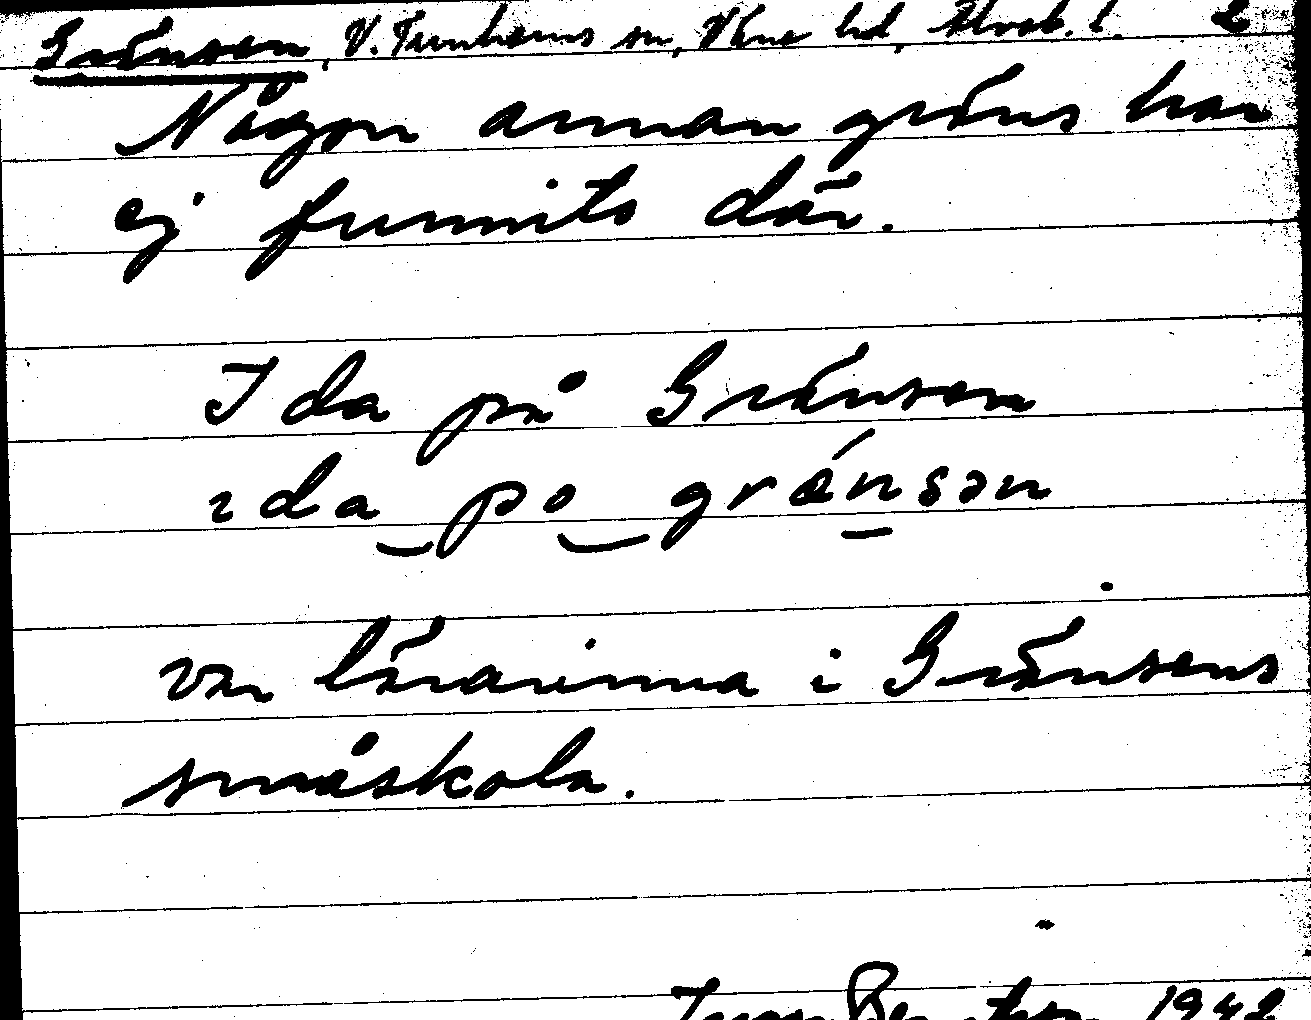 Gränsen, V. Tunhems sn, Väne hd, Älvsb. l. 2
Någon annan gräns har
ej funnits där.
Ida på Gränsen
ida po grǽnsən
var lärarinna i Gränsens
småskola.
1942